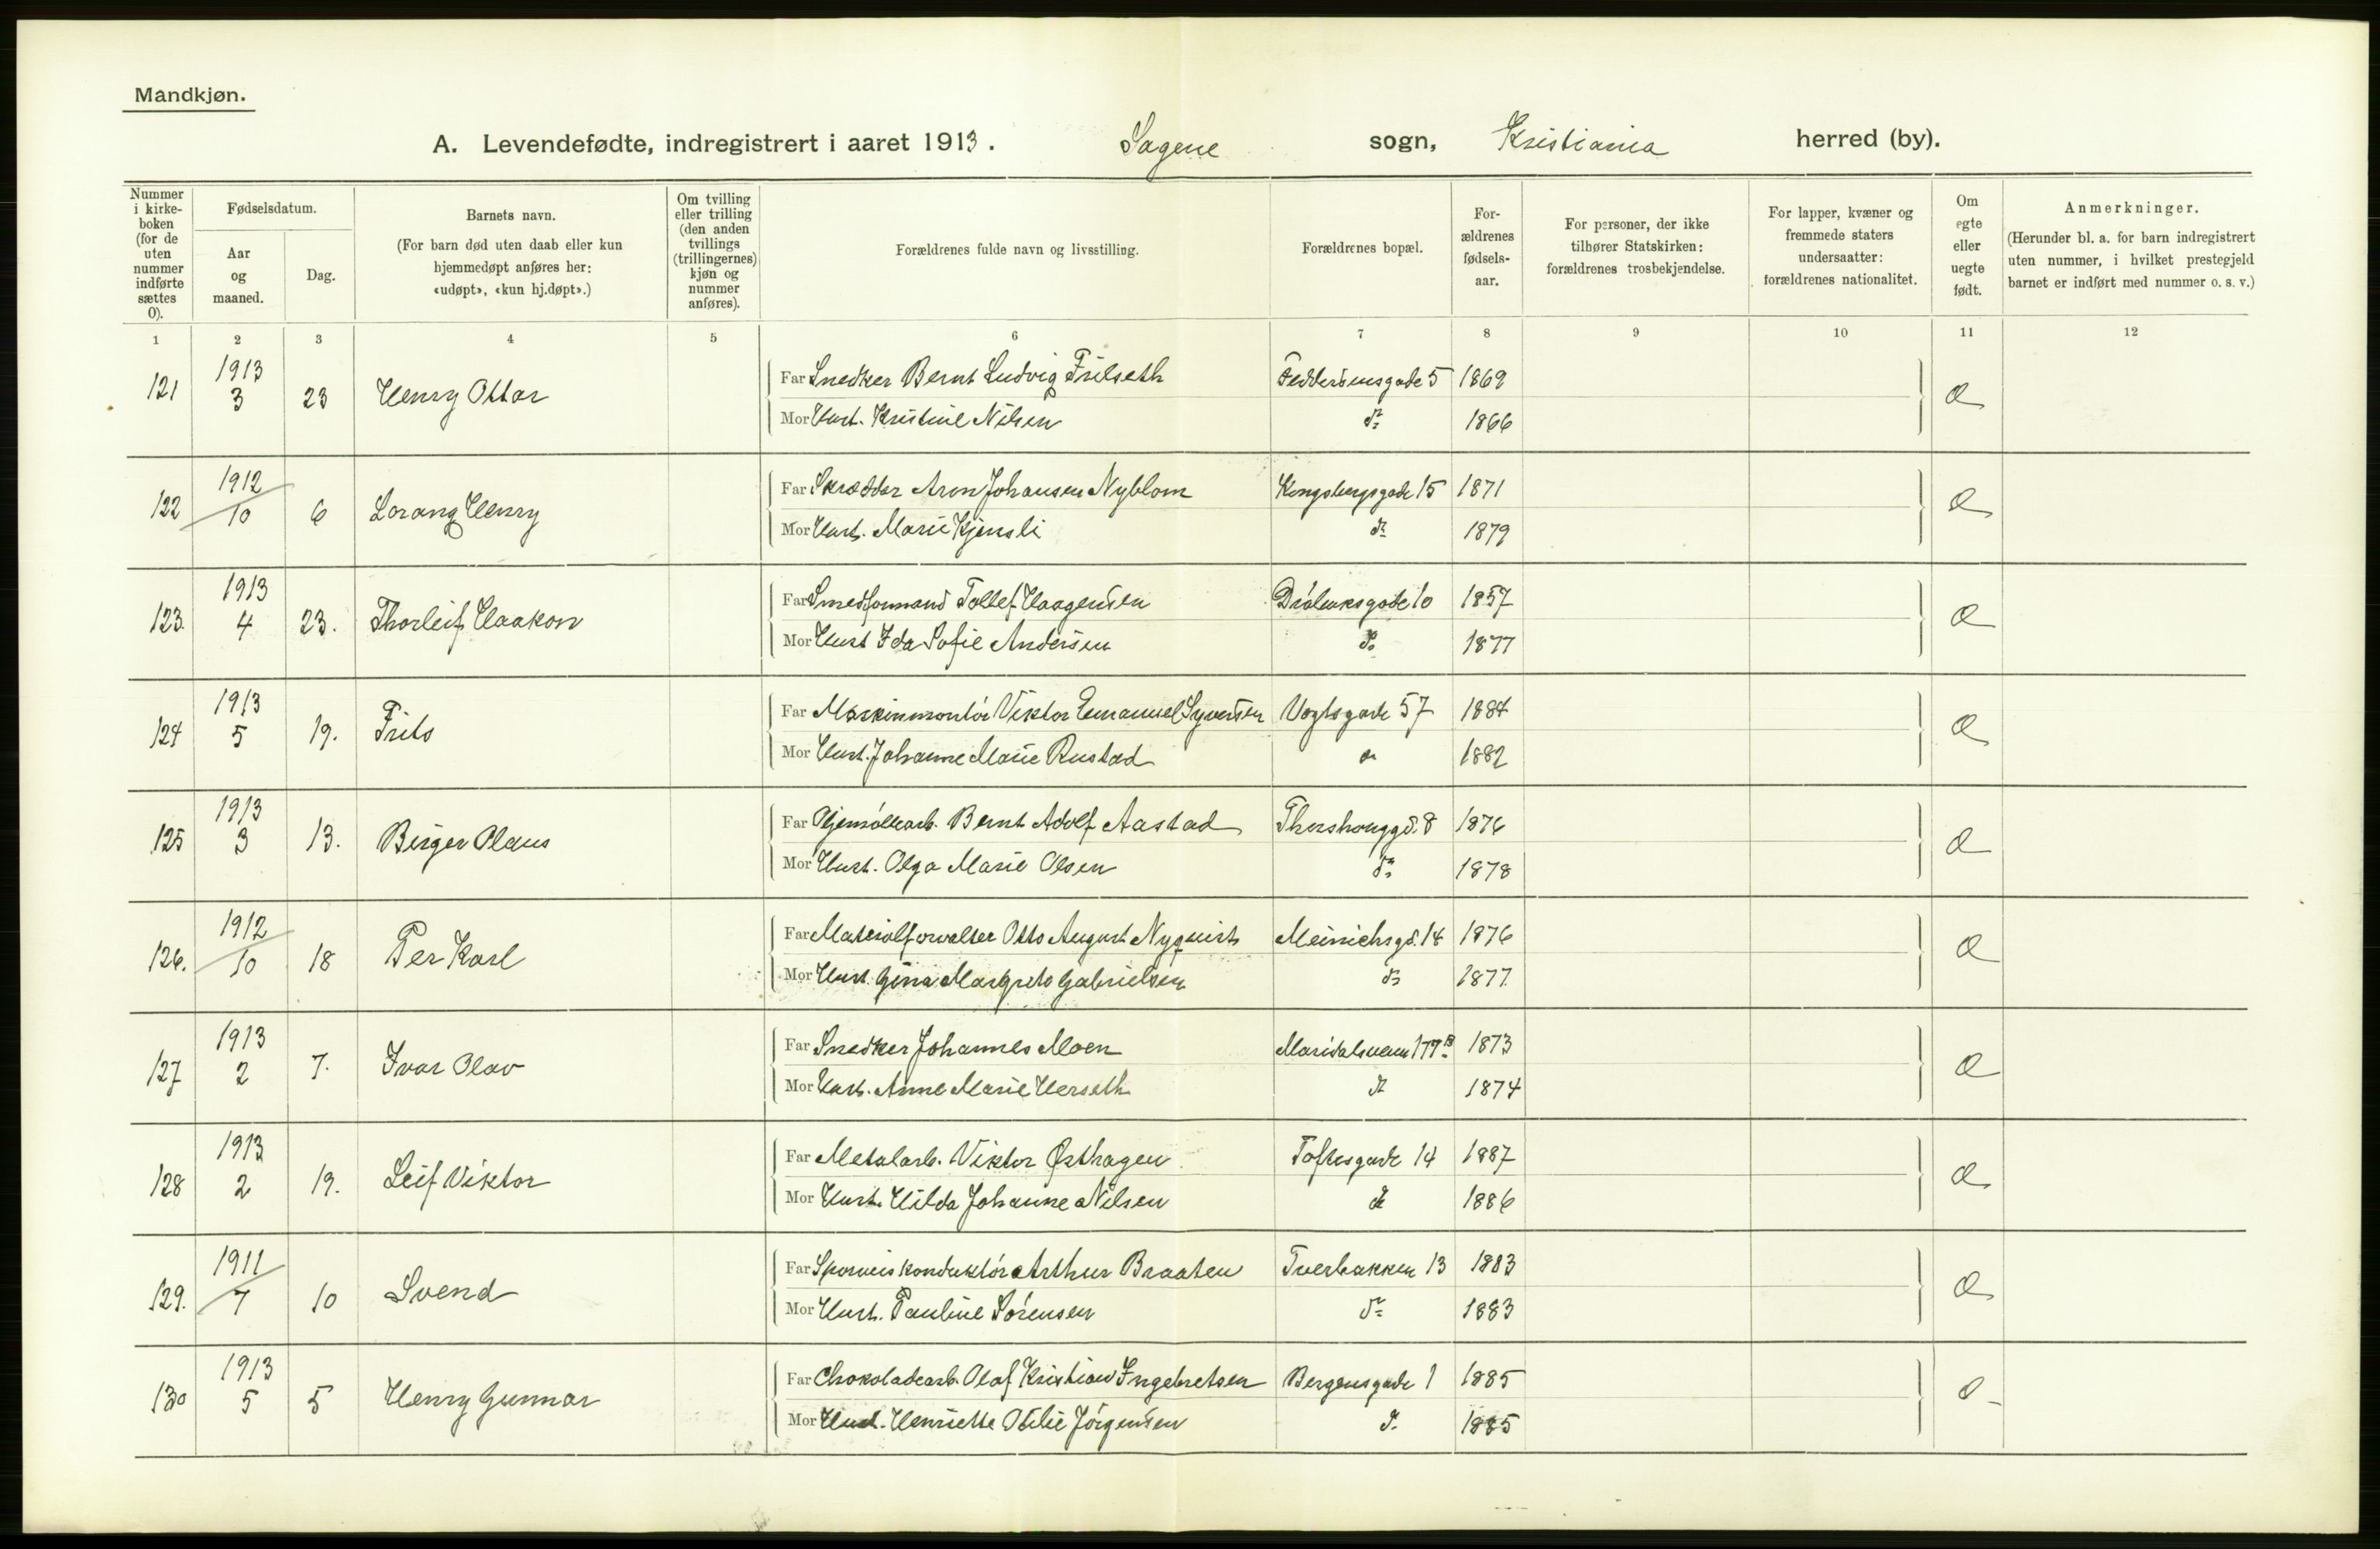 Mandkjøn.
A. Levendefødte, indregistrert i aaret 1913. Sagene sogn, Kristiania herred (by).
Nummer i kirke-boken (for de uten nummer indførte sættes 0).
Fødselsdatum.
Aar og maaned.
Dag.
Barnets navn.
(For barn død uten daab eller kun hjemmedøpt anføres her: «udøpt», «kun hj.døpt».)
Om tvilling eller trilling (den anden tvillings (trillingernes) kjøn og nummer anføres).
Forældrenes fulde navn og livsstilling.
Forældrenes bopæl.
For-ældrenes fødsels-aar.
For personer, der ikke tilhører Statskirken: forældrenes trosbekjendelse.
For lapper, kvæner og fremmede staters undersaatter: forældrenes nationalitet.
Om egte eller uegte født.
Anmerkninger.
(Herunder bl. a. for barn indregistrert uten nummer, i hvilket prestegjeld barnet er indført med nummer o. s. v.)
1 2 3 4 5 6 7 8 9 10 11 12
121 1913 3 23 Henry Ottar Far Snedker Bernt Ludvig Frilseth Feddersensgade 5 1869
Mor Hust. Kristine Nilsen do 1866
122 1912 10 6 Lorang Henry Far Skrædder Aron Johansen Nyblom Kongsbergsgade 15 1871
Mor Hust. Marie Kjensli do 1879
123. 1913 4 23. Thorleif Haakon Far Smedformand Tollef Haagensen 10 1857
Mor Hust Ida Sofie Andersen do 1877
124 1913 5 19. Frits Far Maskinmontör Viktor Emanuel Syversen Vogtsgade 57 1884
Mor Hust. Johanne Marie Rustad do 1882
125 1913 3 13. Birger Olaus Far Bernt Adolf Aastad Thorshauggd. 8 1876
Mor Hust. Olga Marie Olsen do 1878
126. 1912 10 18 Per Karl Far Materialforvalter Otto August Nyquist Meinichsgd. 14 1876
Mor Hust. Gina Margrete Gabrielsen do 1877.
127 1913 2 7. Ivar Olav Far Snedker Johannes Moen Maridalsveien 177B 1873
Mor Hust. Anne Marie Herseth do 1874
128 1913 2 19. Leif Viktor Far Metalarb. Viktor Østhagen Toftesgade 14 1887
Mor Hust. Hilda Johanne Nilsen do 1886
129. 1911 7 10 Svend Far Sporveiskonduktör Arthur Braaten Tverbakken 13 1883
Mor Hust. Pauline Sörensen do 1883
130 1913 5 5 Henry Gunnar Far Chokoladearb. Olaf Kristian Ingebretsen Bergensgade 1 1885
Mor Hust. Henriette Otilie Jörgensen do 1885